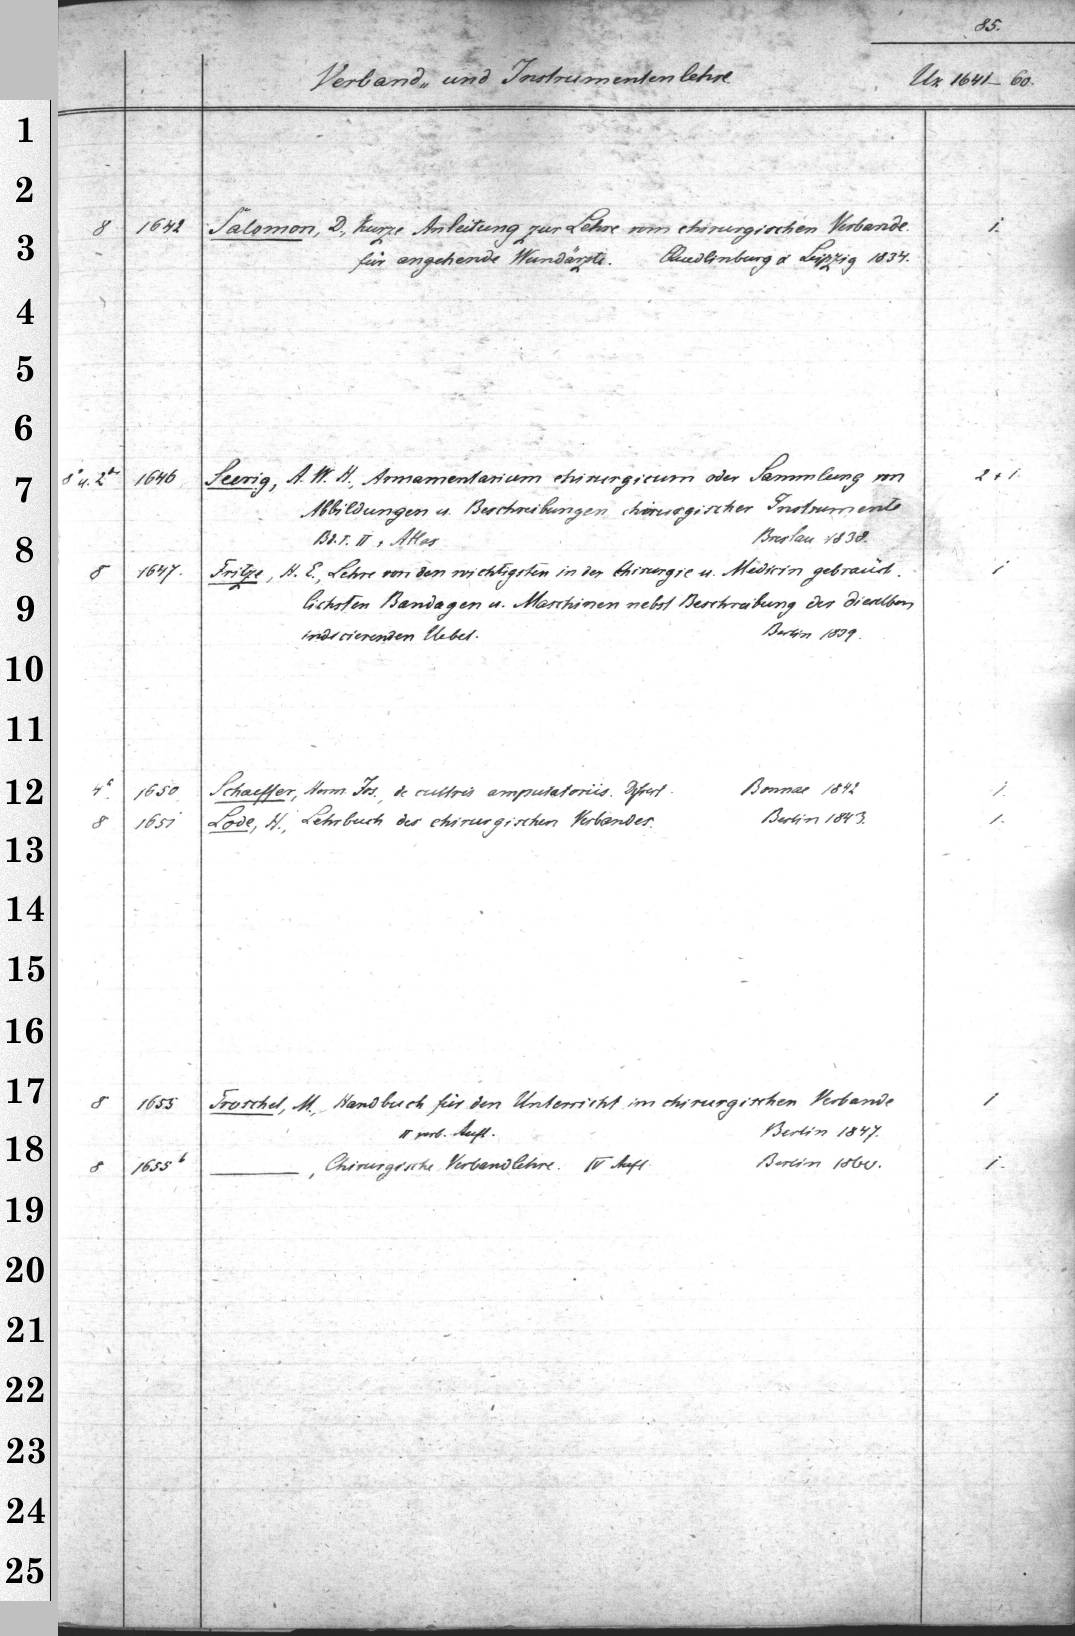 85.
Verband- und Instrumentenlehre
Uz 1641-60.
1
2
8 1642 Salomon, D., Kurze Anleitung zur Lehre vom chirurgischen Verbande. 1.
3
für angehende Wundärzte. Quedlinburg & Leipzig 1834.
4
5
6
8° u. 2° 1646 Seerig, A. W. H., Armamentarium chirurgicum oder Sammlung von 2 + 1.
7
Abbildungen u. Beschreibungen chirurgischer Instrumente
Bd. I. II + Atlas Breslau 1838.
8
8 1647. Fritze, H. E., Lehre von den wichtigsten in der Chirurgie u. Medicin gebräuch- 1
9
lichsten Bandagen u. Maschinen nebst Beschreibung der dieselben
indicierenden Uebel. Berlin 1839.
10
11
12
4° 1650 Schaeffer, Herm. Jos., de cultris amputatoriis. Dissert. Bonnae 1842 1.
8 1651 Lode, H., Lehrbuch des chirurgischen Verbandes. Berlin 1843. 1.
13
14
15
16
17
8 1655 Troschel, M., Handbuch für den Unterricht im chirurgischen Verbande 1
II verb. Aufl. Berlin 1847.
18
8 1655b ———, Chirurgische Verbandlehre. IV Aufl. Berlin 1.
19
20
21
22
23
24
25